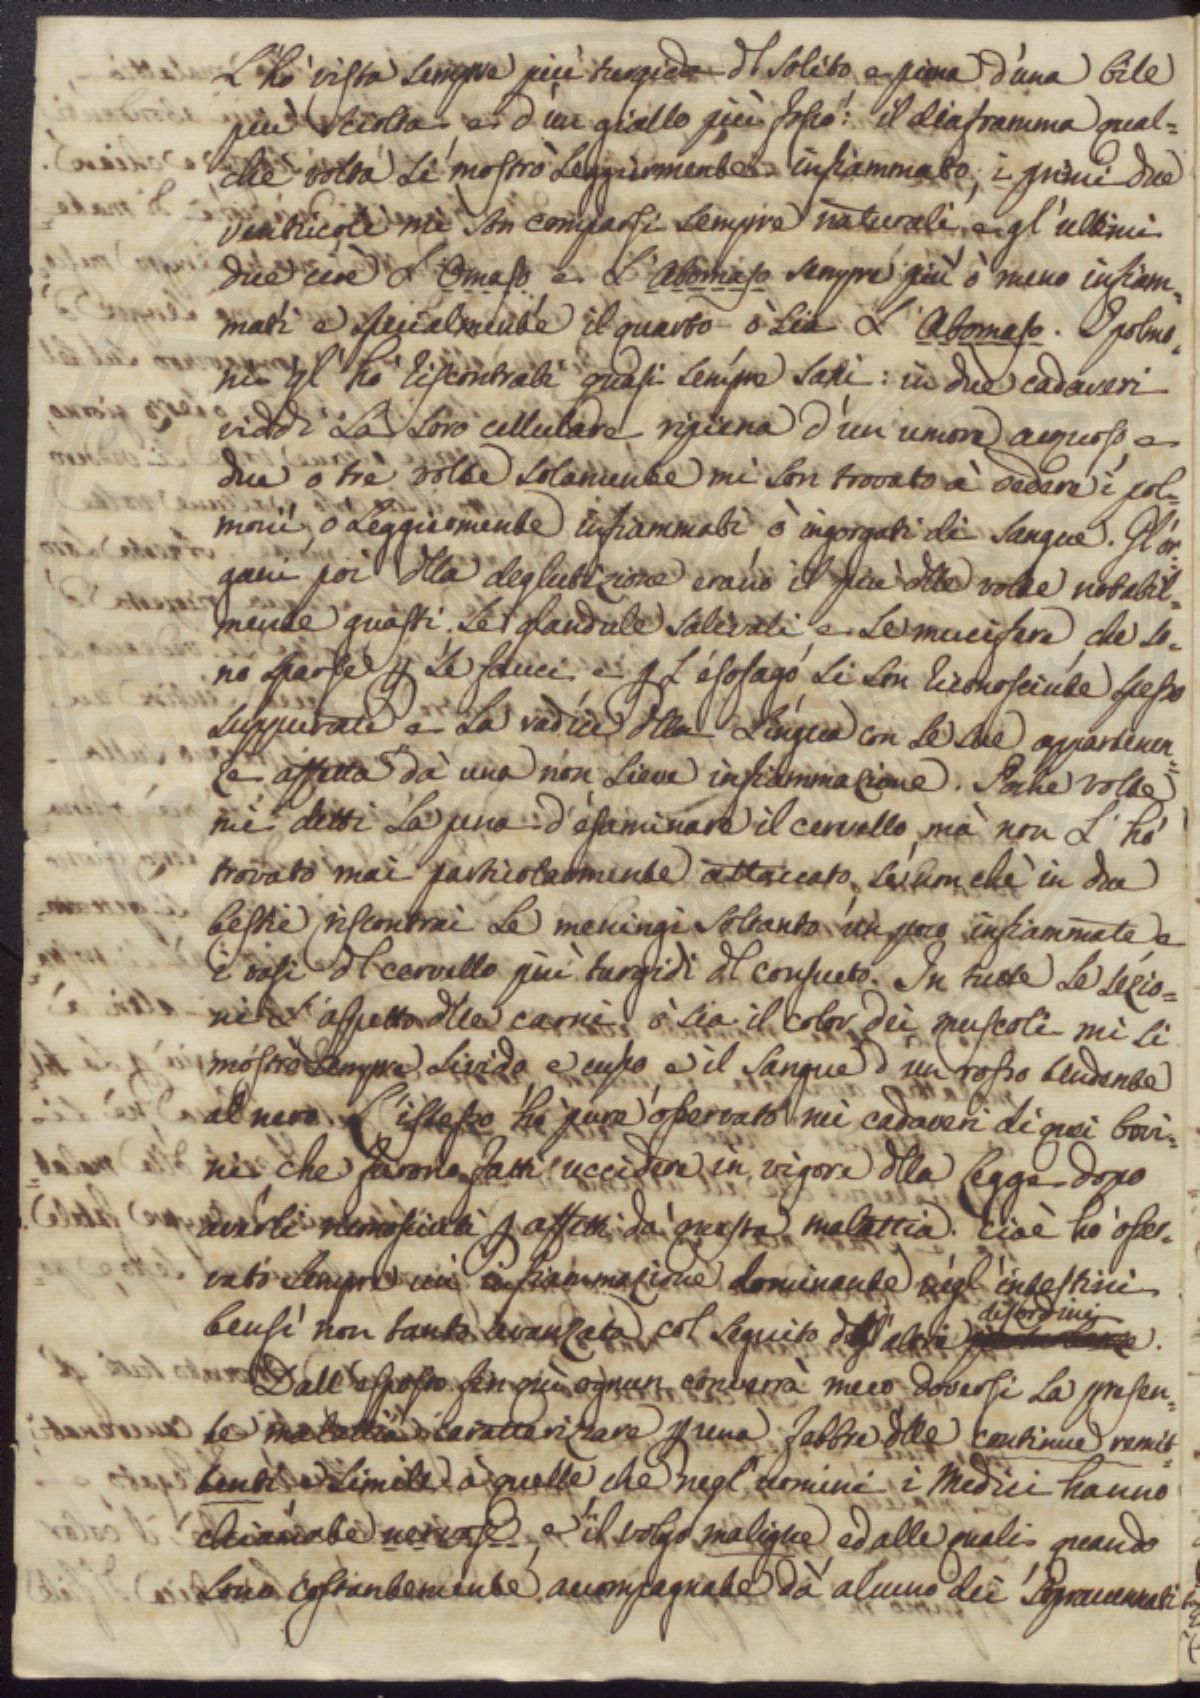 L'hò vista sempre più turgida dl solito e piena d'una bile
più sciolta e d'un giallo più fosco: il diaframma qual=
che volta si mostrò leggiermente infiammato; i primi due
ventricoli mi son comparsi sempre naturali e gl'ultimi
due cioè L'Omaso e L'Abomaso sempre più ò meno infiam=
mati e specialmente il quarto ò sia L'Abomaso. I polmo=
ni gl'hò riscontrati quasi sempre sani: in due cadaveri
viddi La Loro cellulare ripiena d'un umore acquoso, e
due o tre volte solamente mi son trovato à vedere i pol=
moni, o Leggiermente infiammati ò ingorgati di sangue. Gl'or=
gani poi dlla deglutizione erano il più dlle volte notabil=
mente guasti. Le glandule salivali e Le mucifere che so=
no sparse p Le fauci e p L'esofago si son riconosciute spesso
suppurate e La radice dlla Lingua con Le sue appartenen=
ze affetta da una non Lieve infiammazione. Poche volte
mi detti La pena d'esaminare il cervello, mà non L'hò
trovato mai particolarmente attaccato, se non chè in due
bestie riscontrai Le meningi soltanto un poco infiammate e
i vasi dl cervello più turgidi dl consueto. In tutte Le sezio=
ni L'aspetto dlle carni ò sia il color dei muscoli mi si
mostrò sempre Livido e cupo e il sangue d'un rosso tendente
al nero. L'istesso hò pure osservato nei cadaveri di quei bovi=
ni che furono fatti uccidere in vigore dlla Legge dopo
averli riconosciuti p affetti da questa malattia. Cioè hò osser=
vato sempre un'infiammazione dominante negl'intestini
bensì non tanto avanzata col seguito degl'altri disordini.
Dall'esposto fin quì ognun converrà meco doversi La presen=
te malattia caratterizzare p una febbre dlle continue remit=
tenti e simile à quelle che negl'uomini i Medici hanno
chiamate nervose, e il volgo maligne ed alle quali quando
sono costantemente accompagnate dà alcuno dei sopracennati